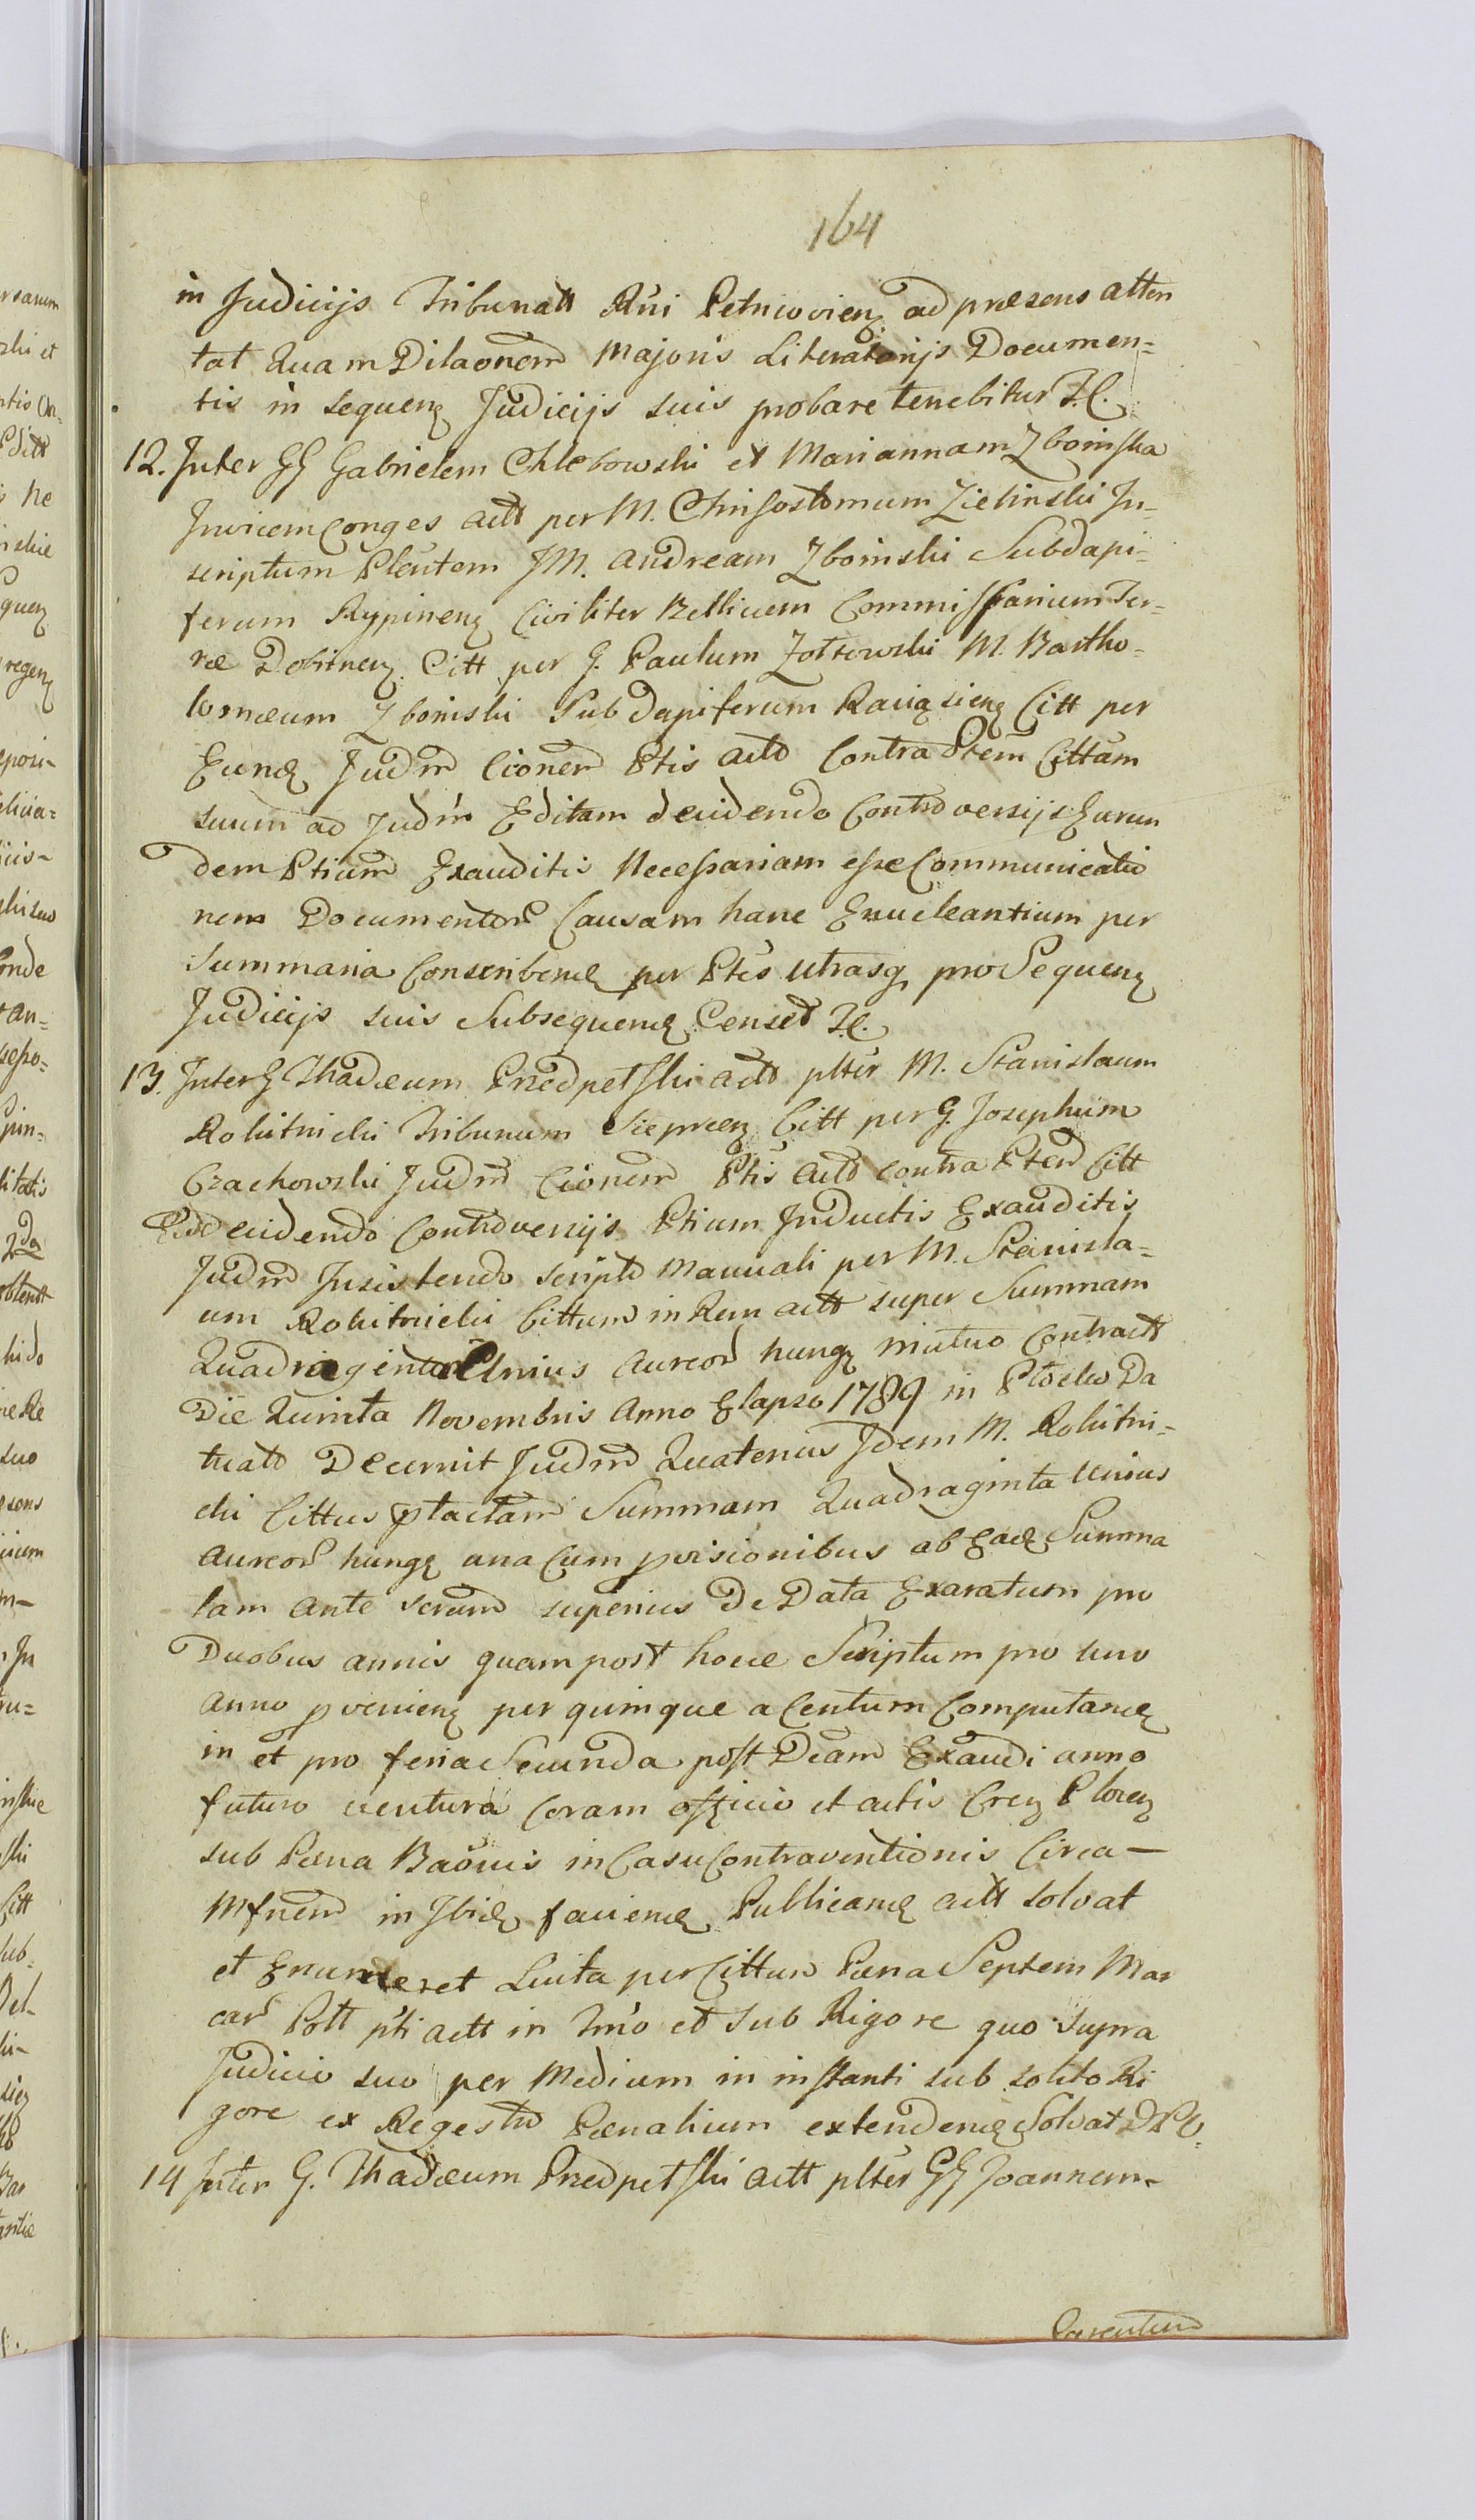 164
in Judicijs Tribunatt Rni Petricovienz ad præsens atten
tat quam Dilaonem Majoris Literatorijs Documen=
tis in sequenz Judicijs suis probare tenebitur J.C.
12. Inter GG Gabrielem Chlebowski et Mariannam Zboinska
Invicem Conges actt per M. Chrisostomum Zielinski In-
scriptum Plentem JM. Andream Zboinski Subdapi-
ferum Rypinenz Civiliter Bellicum Commissarium Ter-
ræ Dobrinenz Citt per G. Paulum Zołtowski M. Bartho-
lomæum Zboinski Subdapiferum Raciązienz Citt per
Eund Judm Cionem Ptis acto Contra Ptem Cittam
suum ad Judm Editam decidendo Controversijs Earun
dem Ptium Exauditis Necessariam esse Communicatio
nem Documentor Causam hanc Enucleantium per
Summaria Conscribend per Ptes utrasq pro Sequenz
Judicijs suis Subsequend Censet J.C.
13. Inter G Thadæum Przedpetski actt plter M. Stanislaum
Rokitnicki Tribunum Sieprcenz Citt per G. Josephum
Czachowski Judm Cionem Ptis acto contra Ptem Citt
Edi decidendo Controversijs Ptium Inductis Exauditis
Judm Insistendo scripto Manuali per M. Stanisla=
um Rokitnicki Cittum in Rem actt super Summam
Quadraginta Unius Aureor hung mutuo Contractt
Die Quinta Novembris Anno Elapso 1789 in Płocko Da
tuato Decernit Judm Quatenus Idem M. Rokitni-
cki Cittus ptactam Summam Quadraginta Unius
Aureor hung una Cum provisionibus ab Ead Summa
tam ante scrum superius De Data Exaratum pro
Duobus annis quam post hocce Scriptum pro uno
anno provenienz per quinque a Centum Computand
in et pro feria Secunda post Dcam Exaudi anno
futuro ventura Coram officio et actis Crenz Plocenz
sub Pæna Baonis in Casu Contraventionis Circa —
Mfnem in Ibid faciend Publicand actt solvat
et Enumeret Luita per Cittum Pæna Septem Mar
car Poll pti actt in Tmo et sub Rigore quo supra
Judicio suo per Medium in instanti sub solito Ri
gore ex Regestro Pænalium extendend Solvat D P C.
14 Inter G. Thadæum Przedpetski actt plter GG Joannem
Parentem